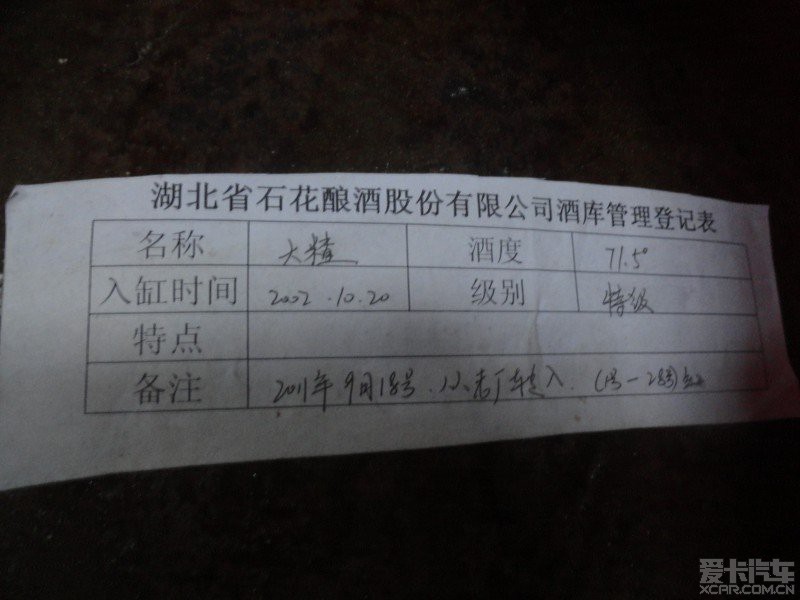 湖北省石花酿酒股份有限公司酒库管理登记表
名称 大精 酒度 71.5°
入缸时间 2002.10.20 级别 特级
特点
备注 2011年9月18号. 转入. (1号-28号)
爱卡汽车
XCAR.COM.CN